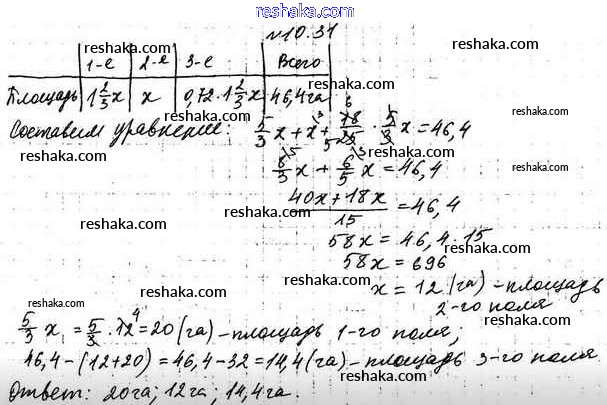 www.reshaka.com
№10.31
reshaka.com reshaka.com reshaka.com
1-е 2-е 3-е Всего
Площадь 1 2/3 x x 0,72·1 2/3 x 46,4 га
Составим уравнение: 5/3 x + x + 18/25 · 5/3 x = 46,4
reshaka.com reshaka.com
8/3 x + 6/5 x = 46,4
reshaka.com
(40x+18x)/15 = 46,4
reshaka.com reshaka.com
58x = 46,4 · 15
58x = 696
reshaka.com
x = 12 (га) – площадь
2-го поля
reshaka.com reshaka.com reshaka.com
5/3 x = 5/3 · 12 = 20 (га) – площадь 1-го поля;
46,4 – (12+20) = 46,4 – 32 = 14,4 (га) – площадь 3-го поля
reshaka.com reshaka.com reshaka.com
Ответ: 20 га; 12 га; 14,4 га.